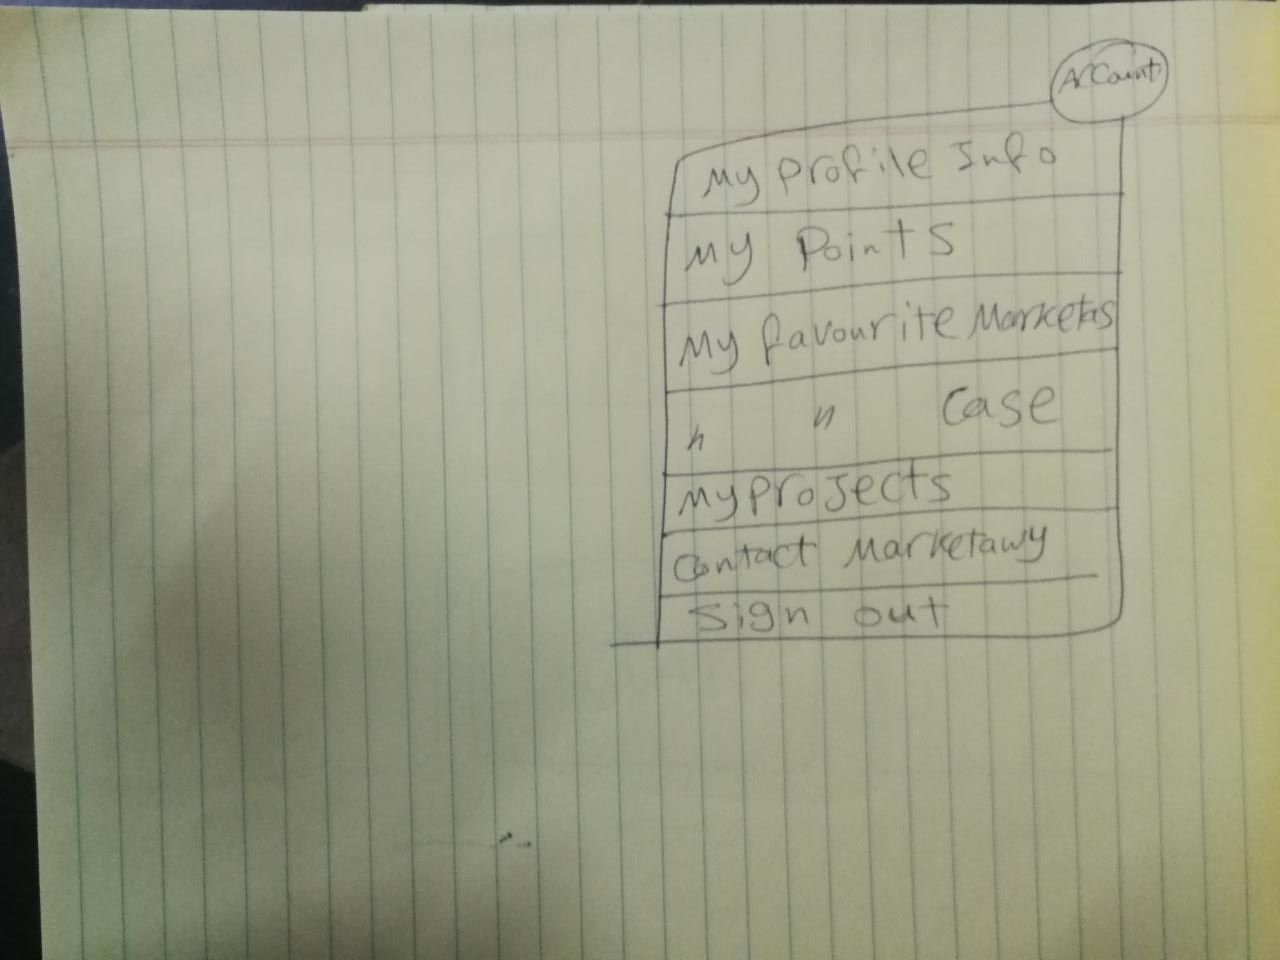 Account
My Profile Info
My Points
My favourite Marketers
" " Case
My Projects
Contact Marketawy
Sign out